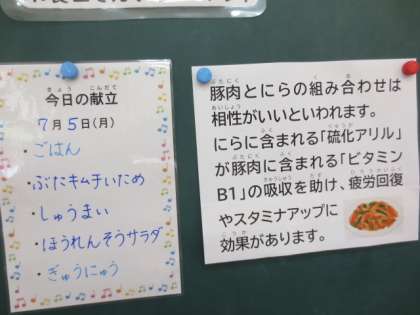 今日の献立
7月5日(月)
・ごはん
・ぶたキムチいため
・しゅうまい
・ほうれんそうサラダ
・ぎゅうにゅう
豚肉とにらの組み合わせは
相性がいいといわれます。
にらに含まれる「硫化アリル」
が豚肉に含まれる「ビタミン
B1」の吸収を助け、疲労回復
やスタミナアップに
効果があります。